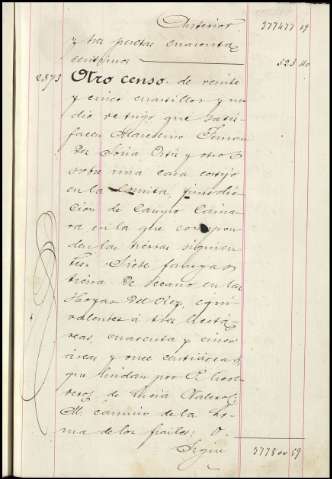 Anterior 377477 19
y tres pesetas cuarenta
centimos 523 40
2373 Otro censo de veinte
y cinco cuartillos y me
dio de trigo que satis
facen Marcelino
y otro
sobre una casa cortijo
en la Ermita, jurisdic
cion de Campo Cáma
ra en la que correspon
den las tierras siguien
tes: Siete fanegas
tierra de secano en las
Hoyas del equi
valentes á tres hectá
reas, cuarenta y cinco
áreas y once centiáreas
que lindan por P. here
deros de Lucia Valero
M. camino de la Lo
ma de los frailes; O.
Sigue 59